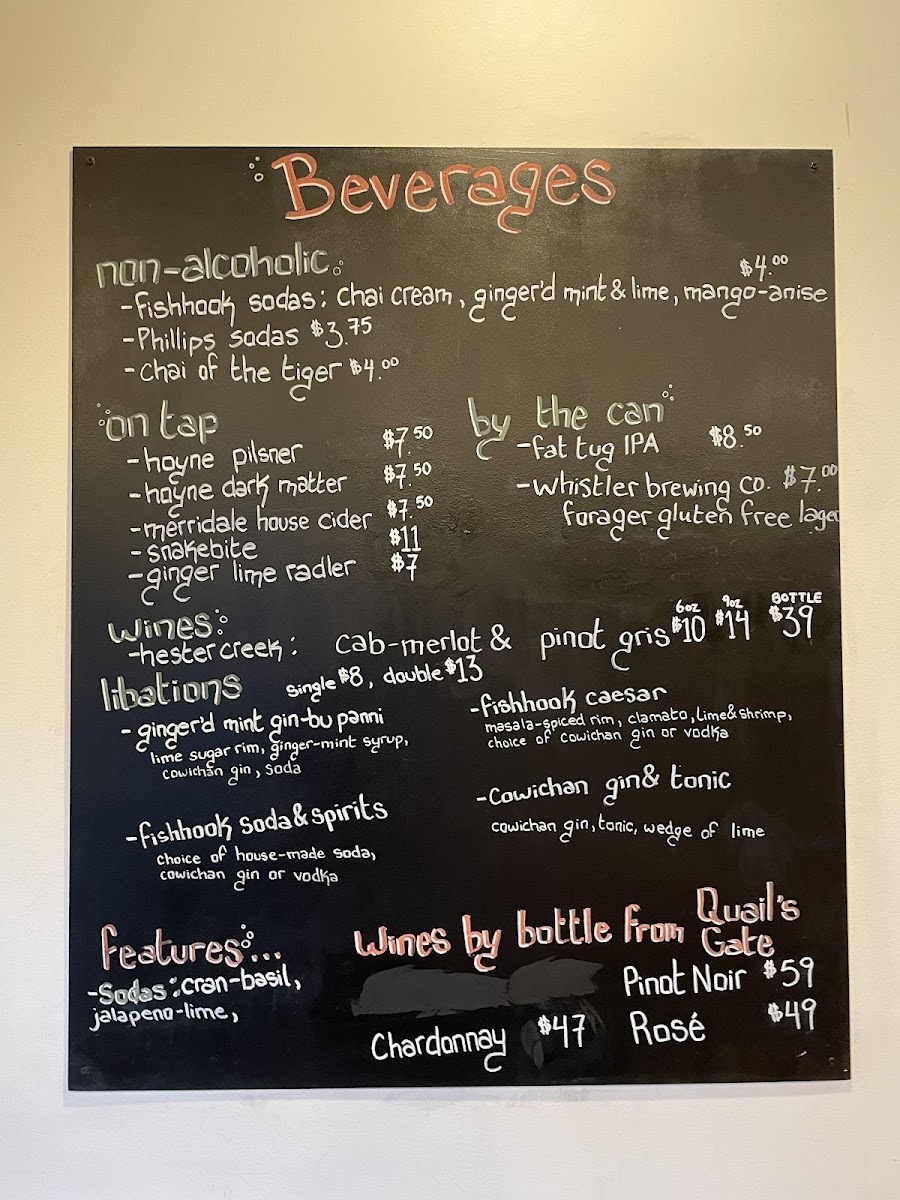 Beverages
non-alcoholic
-fishhook sodas: chai cream, ginger'd mint & lime, mango-anise $4.00
-Phillips sodas $3.75
-chai of the tiger $4.00
on tap
-hoyne pilsner $7.50
-hoyne dark matter $7.50
-merridale house cider $7.50
-snakebite $11
-ginger lime radler $7
by the can
-fat tug IPA $8.50
-whistler brewing co. $7.00
forager gluten free lager
wines:
6oz 9oz BOTTLE
-hester creek: cab-merlot & pinot gris $10 $14 $39
libations single $8, double $13
-ginger'd mint gin-bu panni
lime sugar rim, ginger-mint syrup,
cowichan gin, soda
-fishhook soda & spirits
choice of house-made soda,
cowichan gin or vodka
-fishhook caesar
masala-spiced rim, clamato, lime & shrimp,
choice of cowichan gin or vodka
-Cowichan gin & tonic
cowichan gin, tonic, wedge of lime
features:...
-Sodas: cran-basil,
jalapeno-lime,
Wines by bottle from Quail's Gate
Pinot Noir $59
Chardonnay $47
Rosé $49